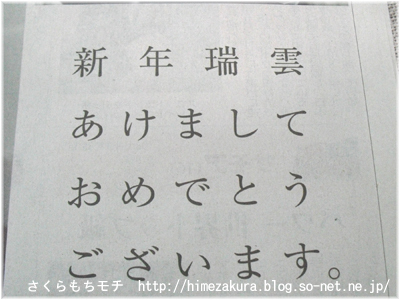 新年瑞雲
あけまして
おめでとう
ございます。
さくらもちモチ http://himezakura.blog.so-net.ne.jp/